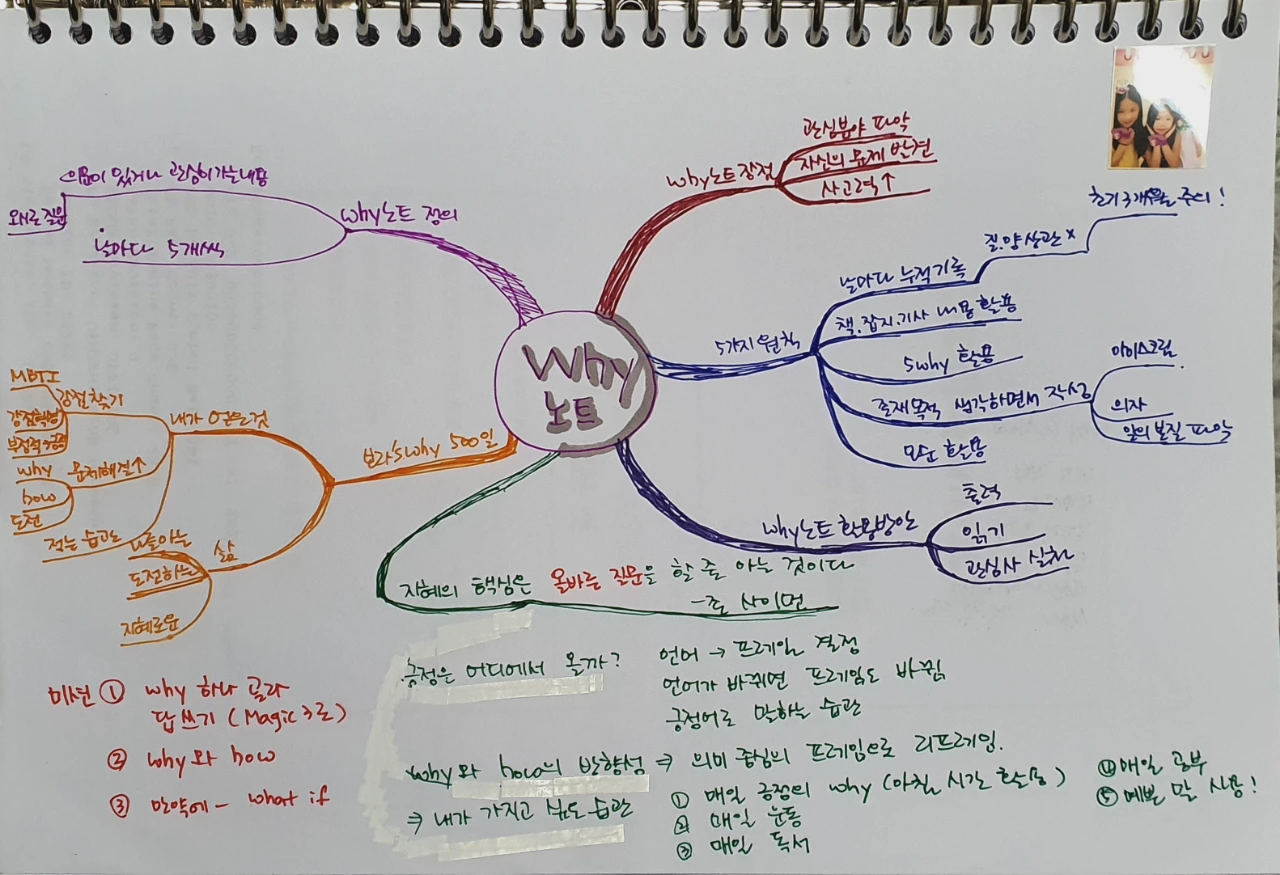 Why
노트
why노트 장점
관심분야 파악
자신의 문제 발견
사고력↑
5가지 원칙
날마다 누적기록
질.양 상관 x
초기 3개월 주의!
책.잡지.기사 내용 활용
5why 활용
존재목적 생각하면서 작성
아이스크림
의자
일의 본질 파악
모순 활용
why노트 활용방안
출력
읽기
관심사 실천
지혜의 핵심은 올바른 질문을 할 줄 아는 것이다
-존 사이먼
보라's why 500일
내가 얻은것
강점찾기
MBTI
강점혁명
문제해결↑
why
how
도전
적는 습관
삶
도전하는
지혜로운
why노트 정의
의문이 있거나 관심이가는내용
왜로 질문
날마다 5개씩
미션 ① why 하나 골라
답쓰기 (Magic 3로)
② why와 how
③ 만약에- what if
긍정은 어디에서 올까?
언어 → 프레임 결정
언어가 바뀌면 프레임도 바뀜
긍정어로 말하는 습관
why와 how의 방향성 ⇒ 의미 중심의 프레임으로 리프레임.
⇒ 내가 가지고 싶은 습관
① 매일 긍정의 why (아침 시간 활용)
② 매일 운동
③ 매일 독서
④ 매일 공부
⑤ 예쁜 말 사용!